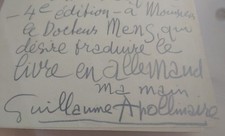 - 4e édition - à Monsieur
le Docteur Meng qui
désire traduire le
livre en allemand
ma main
Guillaume Apollinaire